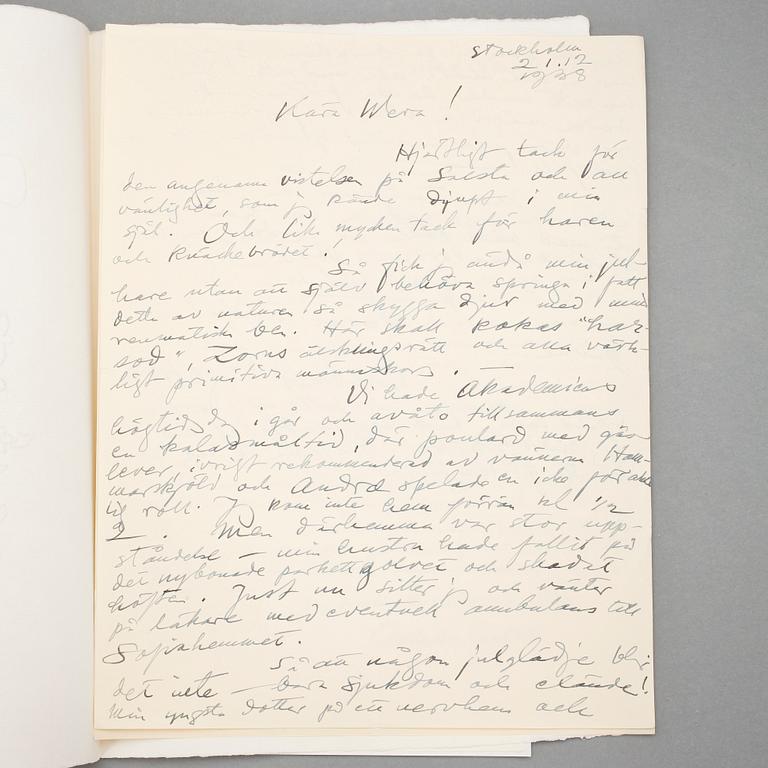 Stockholm
21.12
1958
Kära Wera!
Hjärtligt tack för
den angenäma vistelsen på Salsta och all
vänlighet, som jag kände djupt i min
själ. Och lik mycken tack för haren
och knäckebrödet!
Så fick jag ändå min jul-
hare utan att själv behöva springa i fatt
detta av naturen så skygga djur med mina
reumatiska ben. Här skall kokas "har-
sod", Zorns älsklingsrätt och alla värk-
ligt primitiva människors.
Vi hade Akademiens
högtidsdag i går och avåto tillsammans
en kalasmåltid, där poulard med gås-
lever, ivrigt rekommenderad av vännerna Ham-
marskjöld och Andræ spelade en icke föraktl-
ig roll. Jag kom inte hem förrän kl 1/2
2. Men därhemma var stor upp-
ståndelse – min hustru hade fallit på
det nybonade parkettgolvet och skadat
höften. Just nu sitter jag och väntar
på läkare med eventuell ambulans till
Sofiahemmet.
Så att någon julglädje blir
det inte – bara sjukdom och elände!
Min yngsta dotter på ett vervhem och